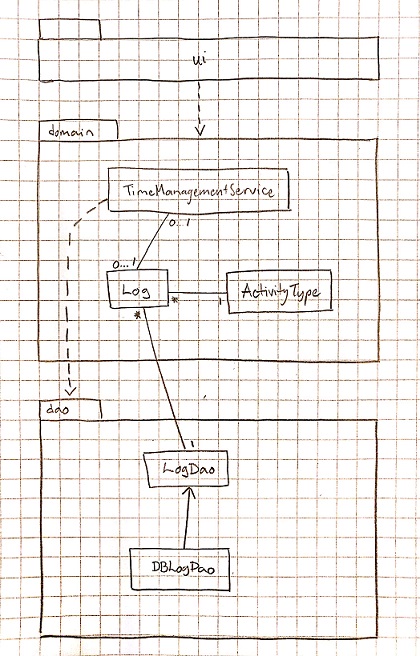 ui
domain
TimeManagementService
0...1
0...1
Log
*
1
ActivityType
*
dao
1
LogDao
DBLogDao